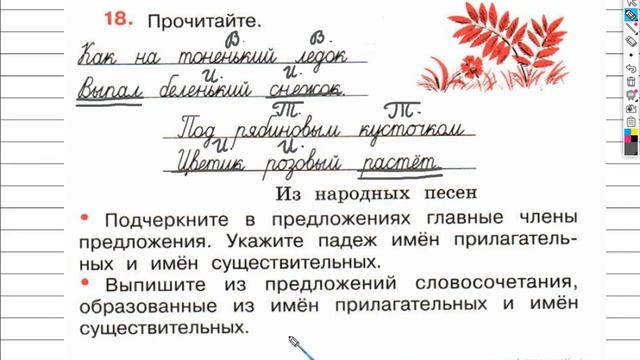 18. Прочитайте.
В. В.
Как на тоненький ледок
И. И.
Выпал беленький снежок.
Т. Т.
Под рябиновым кусточком
И. И.
Цветик розовый растёт.
Из народных песен
• Подчеркните в предложениях главные члены
предложения. Укажите падеж имён прилагатель-
ных и имён существительных.
• Выпишите из предложений словосочетания,
образованные из имён прилагательных и имён
существительных.